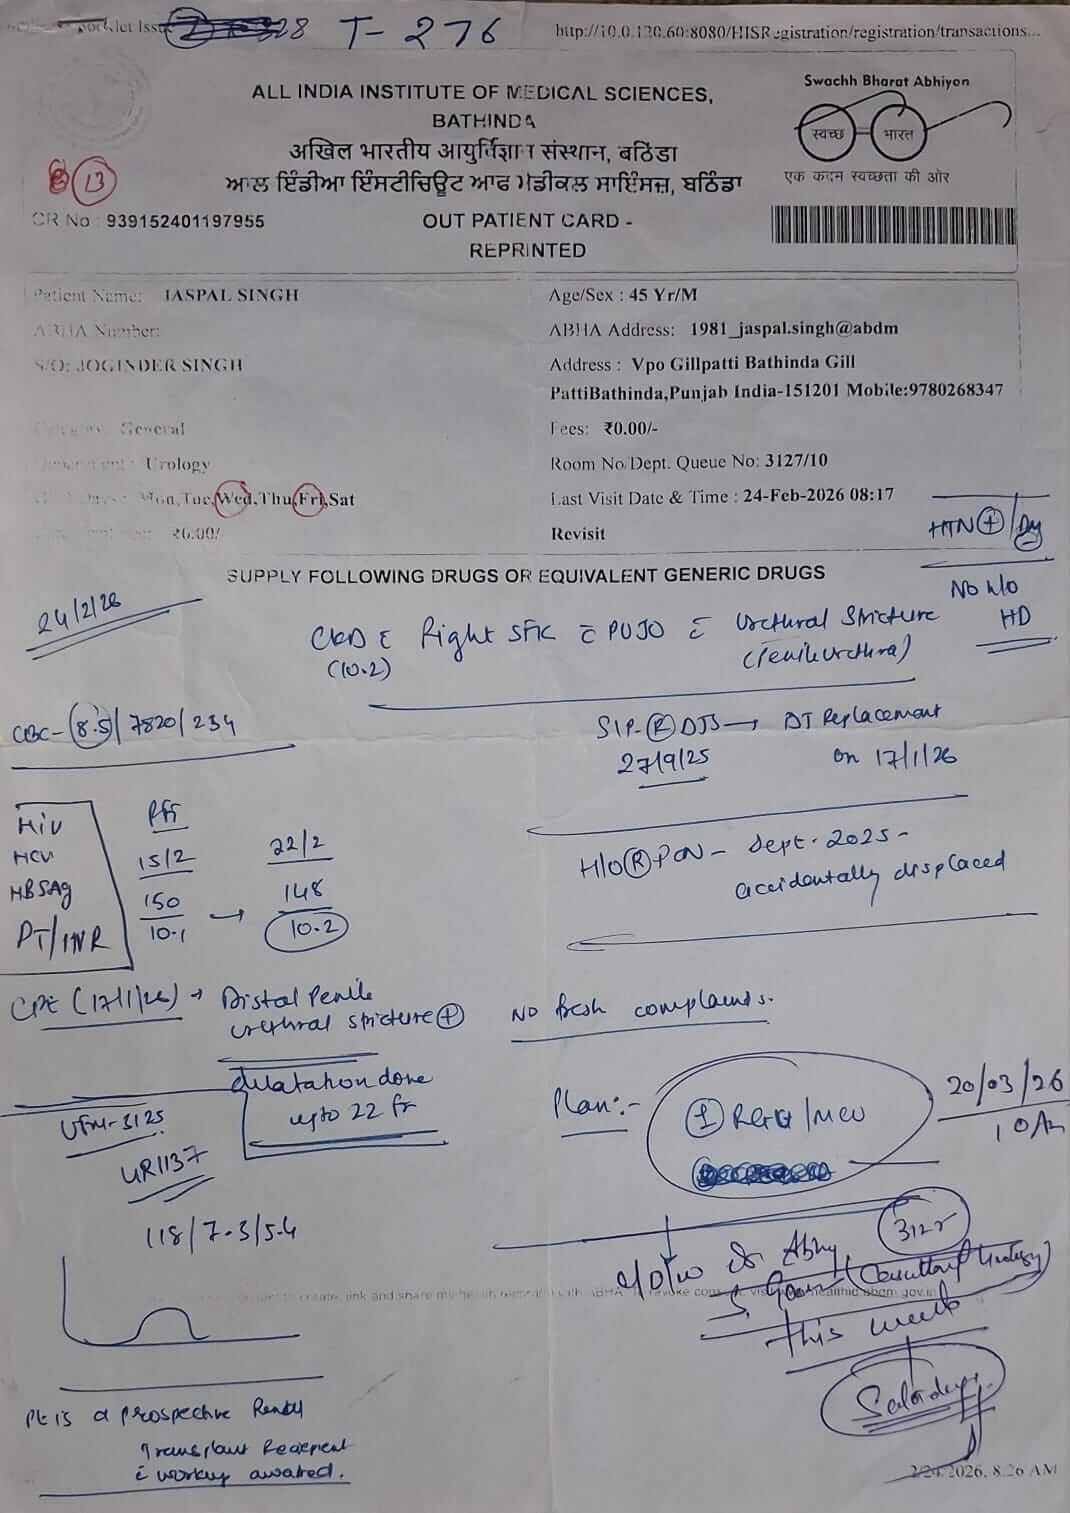 T-276
http://10.0.120.60:8080/HISRegistration/registration/transactions...
Swachh Bharat Abhiyon
स्वच्छ भारत
एक कदम स्वच्छता की ओर
ALL INDIA INSTITUTE OF MEDICAL SCIENCES,
BATHINDA
अखिल भारतीय आयुर्विज्ञान संस्थान, बठिंडा
ਆਲ ਇੰਡੀਆ ਇੰਸਟੀਚਿਊਟ ਆਫ ਮੈਡੀਕਲ ਸਾਇੰਸਜ਼, ਬਠਿੰਡਾ
13
CR No : 939152401197955
OUT PATIENT CARD -
REPRINTED
Patient Name: JASPAL SINGH
Age/Sex : 45 Yr/M
ABHA Number:
ABHA Address: 1981_jaspal.singh@abdm
S/O: JOGINDER SINGH
Address : Vpo Gillpatti Bathinda Gill
PattiBathinda,Punjab India-151201 Mobile:9780268347
Category: General
Fees: ₹0.00/-
Department: Urology
Room No/Dept. Queue No: 3127/10
Mon,Tue,Wed,Thu,Fri,Sat
Last Visit Date & Time : 24-Feb-2026 08:17
₹0.00/-
Revisit
HTN ⊕/DM
SUPPLY FOLLOWING DRUGS OR EQUIVALENT GENERIC DRUGS
No h/o
HD
24/2/26
CKD c̄ Right SFK c̄ PUJO c̄ Urethral Stricture
(10.2) (Penile urethra)
CBC- 8.5/7820/234
S/P- Ⓡ DJS → DJ Replacement
27/9/25 on 17/1/26
HIV
HCV
HBSAg
PT/INR
RFT
15/2 22/2
150 → 148
10.1 10.2
H/O Ⓡ PCN - Sept. 2025 -
accidentally displaced
CPE (17/1/26) → Distal Penile
urethral stricture ⊕
No fresh complaints.
dilatation done
upto 22 fr
UFM- 3125
UR1137
118/7.3/5.4
Plan:-
① RGU/MCU
20/03/26
10 Am
3125
Dr Abhay
(Consultant Urology)
this week
Saturday
Pt is a prospective Renal
Transplant Recepient
c̄ workup awaited.
2/24/2026, 8:26 AM